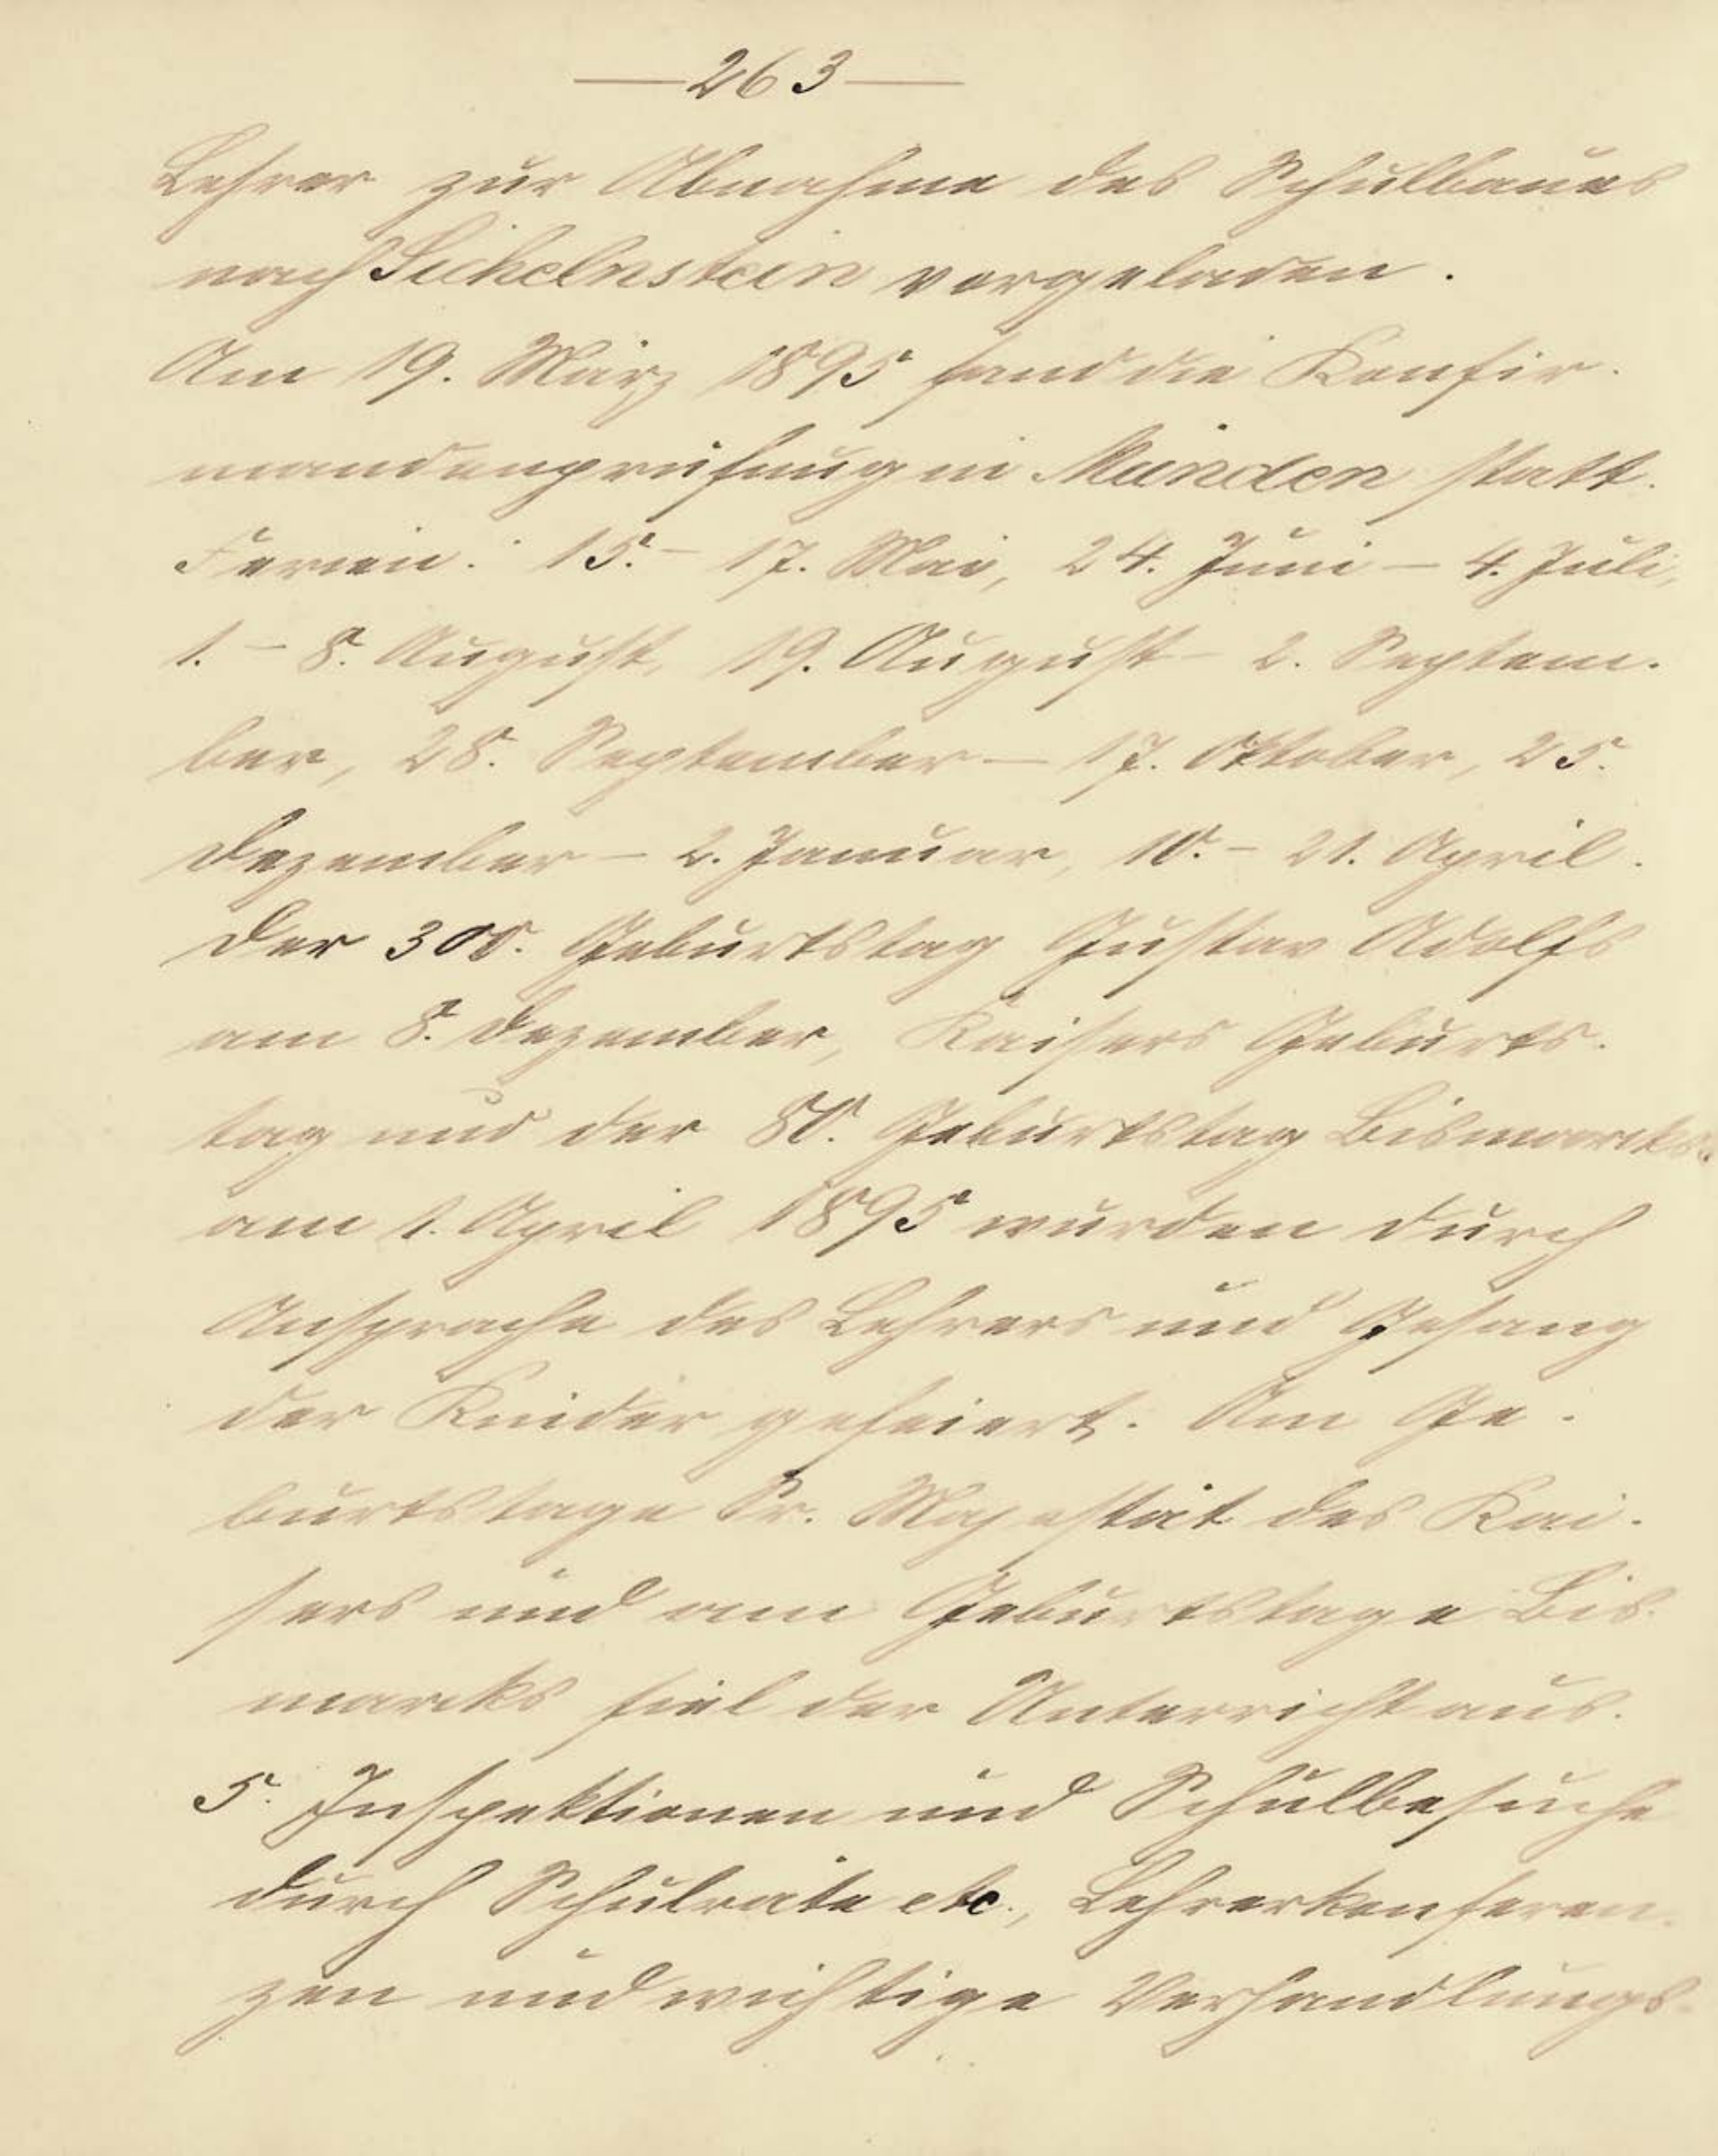 — 263 —
Lehrer zur Abnahme des Schulbaues
nach Sichelnstein vorgeladen.
Am 19. März 1895 fand die Konfir-
mandenprüfung in Münden statt.
Ferien: 15. - 17. Mai, 24. Juni - 4. Juli,
1. - 8. August, 19. August - 2. Septem-
ber, 28. September - 17. Oktober, 25.
Dezember - 2. Januar, 10. - 21. April.
Der 300. Geburtstag Gustav Adolfs
am 8. Dezember, Kaisers Geburts-
tag und der 80. Geburtstag Bismarcks
am 1. April 1895 wurden durch
Ansprache des Lehrers und Gesang
der Kinder gefeiert. Am Ge-
burtstage Sr. Majestät des Kai-
sers und am Geburtstage Bis-
marcks fiel der Unterricht aus.
5. Inspektionen und Schulbesuche
durch Schulräte etc., Lehrerkonferen-
zen und wichtige Verhandlungs-